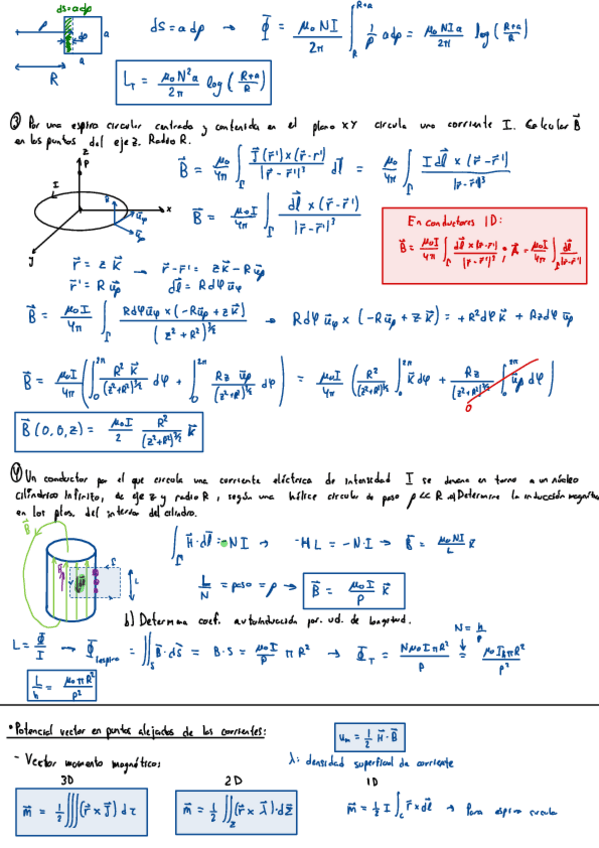 ds = a dρ
ρ
dρ
a
a
R
ds = a dρ → Φ = μ₀NI/2π ∫_R^{R+a} 1/ρ a dρ = μ₀NIa/2π log(R+a/R)
L_T = μ₀N²a/2π log(R+a/R)
③ Por una espira circular centrada y contenida en el plano XY circula una corriente I. Calcular B⃗
en los puntos del eje z. Radio R.
z
P
I
x
y
u⃗φ
u⃗ρ
B⃗ = μ₀/4π ∫_Γ J⃗(r⃗')×(r⃗-r⃗')/|r⃗-r⃗'|³ dl⃗ = μ₀/4π ∫_Γ I dl⃗ × (r⃗-r⃗')/|r⃗-r⃗'|³
B⃗ = μ₀I/4π ∫_Γ dl⃗ × (r⃗-r⃗')/|r⃗-r⃗'|³
En conductores 1D:
B⃗ = μ₀I/4π ∫_Γ dl⃗×(r⃗-r⃗')/|r⃗-r⃗'|³ ; A⃗ = μ₀I/4π ∫_Γ dl⃗/|r⃗-r⃗'|
r⃗ = z k⃗ → r⃗-r⃗' = z k⃗ - R u⃗ρ
r⃗' = R u⃗ρ dl⃗ = R dφ u⃗φ
B⃗ = μ₀I/4π ∫_Γ R dφ u⃗φ × (-R u⃗ρ + z k⃗)/(z²+R²)^{3/2} → R dφ u⃗φ × (-R u⃗ρ + z k⃗) = +R² dφ k⃗ + R z dφ u⃗ρ
B⃗ = μ₀I/4π (∫_0^{2π} R² k⃗/(z²+R²)^{3/2} dφ + ∫_0^{2π} Rz u⃗ρ/(z²+R²)^{3/2} dφ) = μ₀I/4π (R²/(z²+R²)^{3/2} ∫_0^{2π} k⃗ dφ + Rz/(z²+R²)^{3/2} ∫_0^{2π} u⃗ρ dφ)
0
B⃗(0,0,z) = μ₀I/2 R²/(z²+R²)^{3/2} k⃗
④ Un conductor por el que circula una corriente eléctrica de intensidad I se devana en torno a un núcleo
cilíndrico infinito, de eje z y radio R, según una hélice circular de paso ρ << R a) Determine la inducción magnética
en los ptos. del interior del cilindro.
B⃗
Γ
L
∫_Γ H⃗·dl⃗ = NI → -HL = -N·I → B⃗ = μ₀NI/L k⃗
L/N = paso = ρ → B⃗ = μ₀I/ρ k⃗
b) Determina coef. autoinducción por. ud. de longitud.
L = Φ/I → Φ₁espira = ∬_S B⃗·dS⃗ = B·S = μ₀I/ρ πR² → Φ_T = Nμ₀IπR²/ρ = μ₀IhπR²/ρ²
N = h/ρ
L/h = μ₀πR²/ρ²
• Potencial vector en puntos alejados de las corrientes:
u_m = 1/2 H⃗·B⃗
- Vector momento magnético:
λ: densidad superficial de corriente
3D 2D 1D
m⃗ = 1/2 ∭(r⃗ × J⃗) dτ
m⃗ = 1/2 ∬_Σ (r⃗ × λ⃗)·dΣ⃗
m⃗ = 1/2 I ∫_C r⃗×dl⃗ → Para espira circular